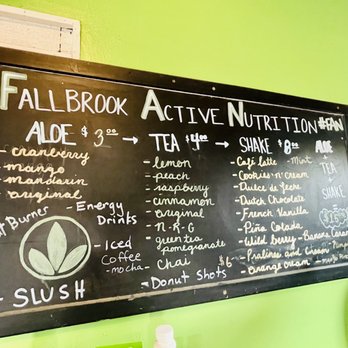 FALLBROOK ACTIVE NUTRITION #FAN
ALOE $3.00 → TEA $4.00 → SHAKE $8.00
- cranberry
- mango
- mandarin
- original
Burner
- Energy Drinks
- Iced Coffee
- mocha
- SLUSH
- lemon
- peach
- raspberry
- cinnamon
- original
- N-R-G
- green tea pomegranate
- Chai
- Donut Shots $6
- Café latte - Mint
- Cookies n' Cream
- Dulce de leche
- Dutch Chocolate
- French Vanilla
- Piña Colada
- Wild Berry - Banana Caram
- Pralines and Cream
- Orange Cream
ALOE
↓
TEA
↓
SHAKE